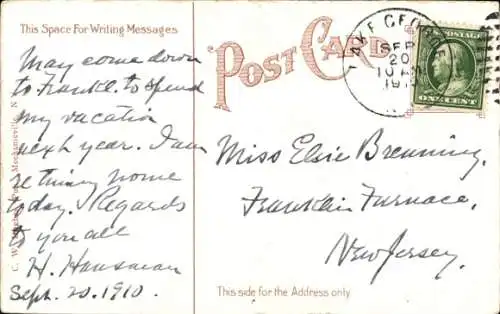 This Space For Writing Messages
POST CARD
LAKE GEORGE
SEP
20
10 AM
191
ONE CENT
May come down
to Frankl. to spend
my vacation
next year. I am
returning home
today. Regards
to you all
H. Hausman
Sept. 20. 1910.
Miss Elsie Breuning,
Franklin Furnace,
New Jersey.
This side for the Address only
Mechanicville, N.